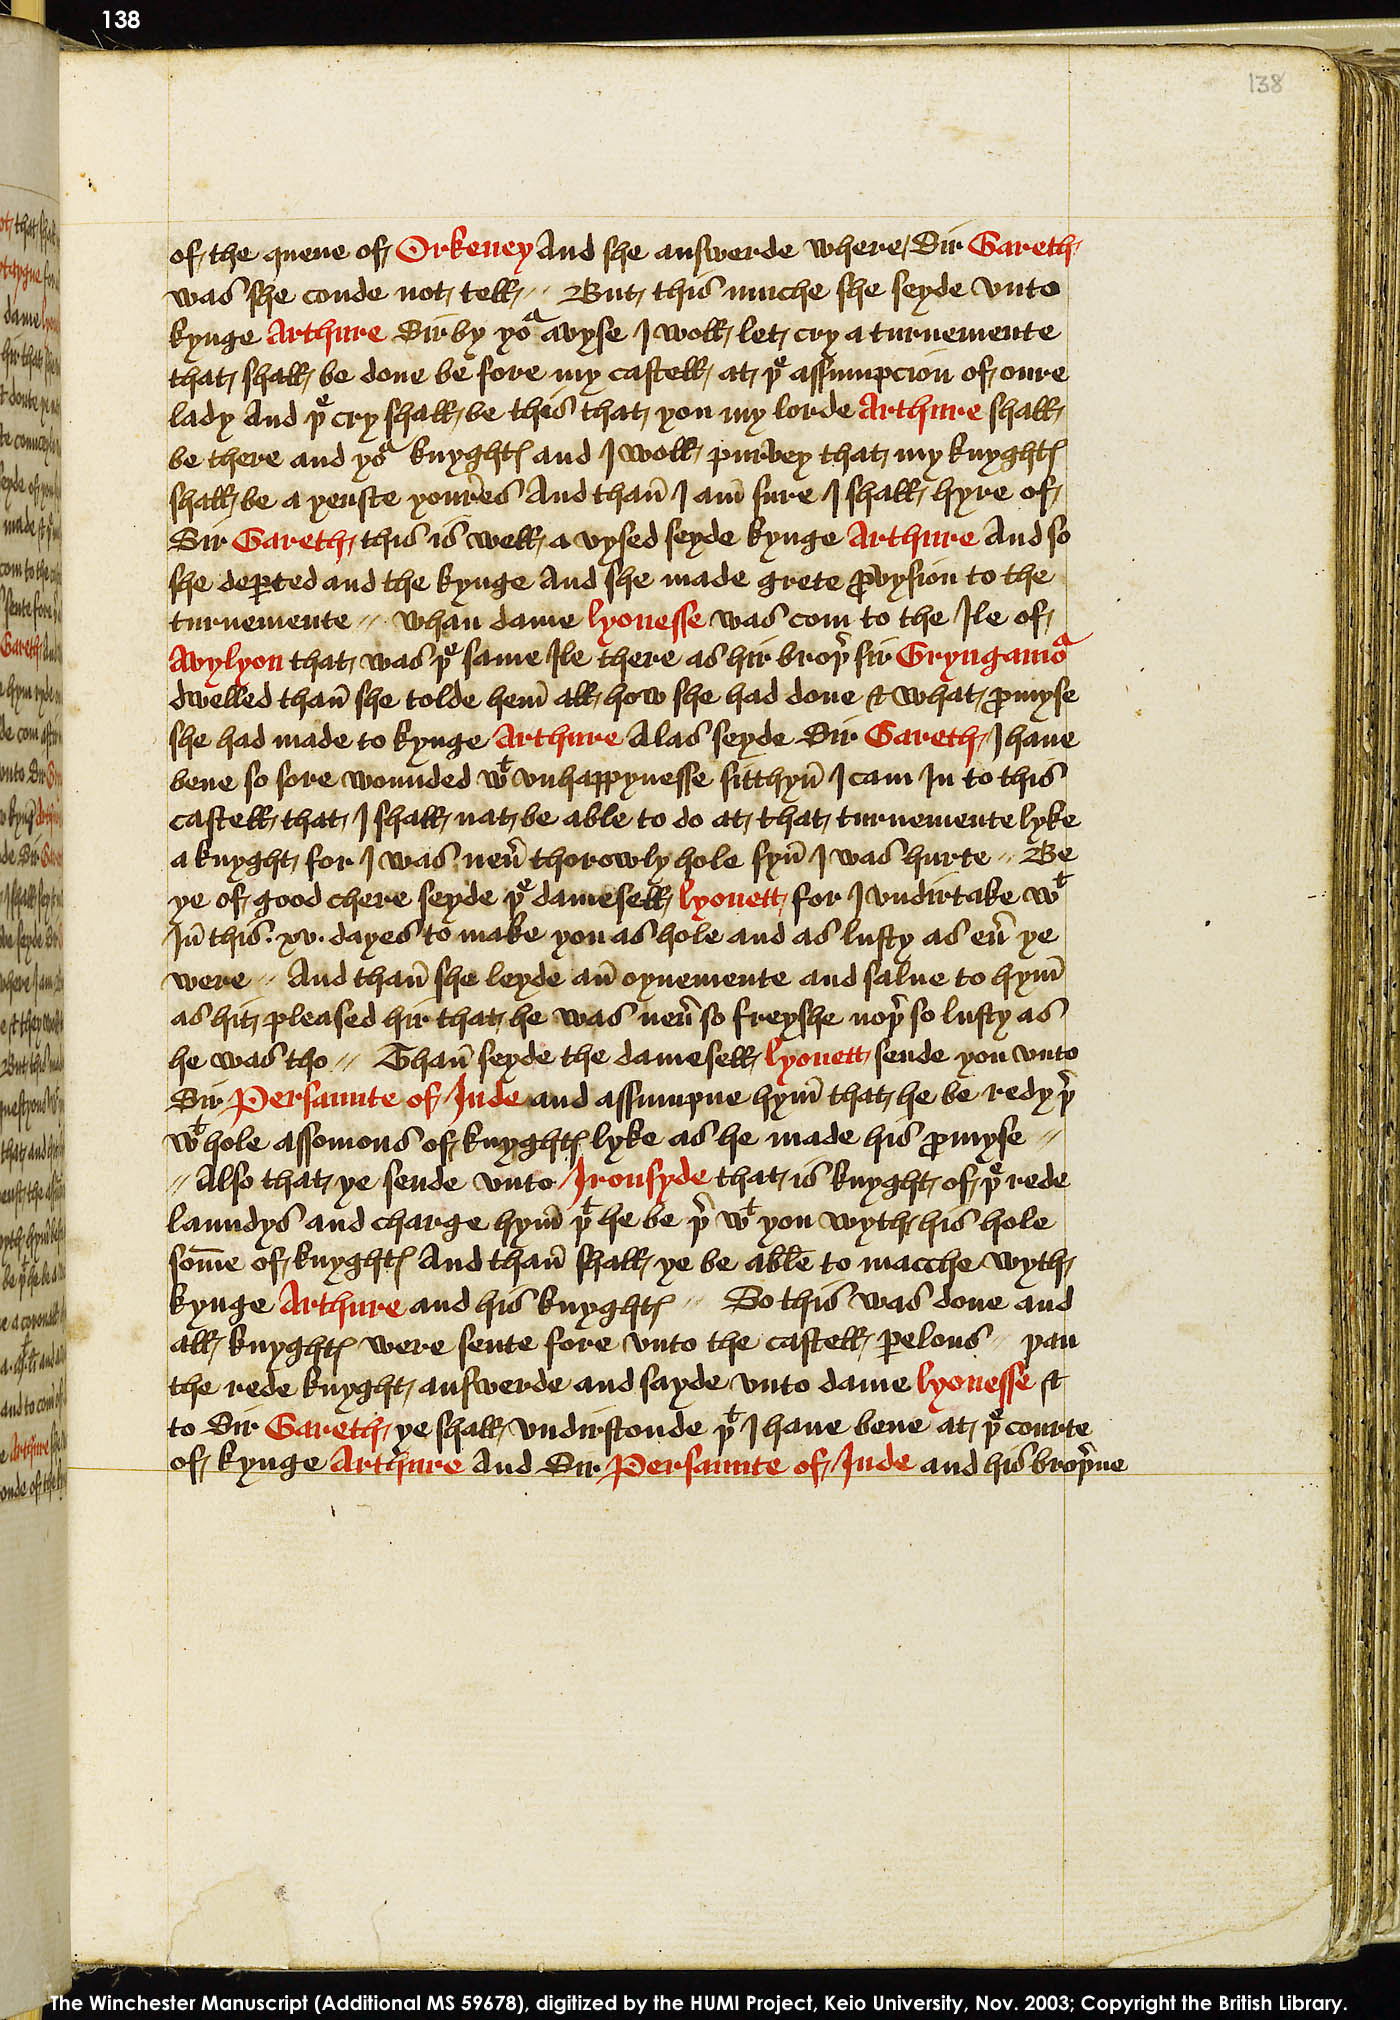 138
138
of the quene of Orkeney And she answerde where Sir Gareth
was she coude not tell // But this muche she seyde vnto
kynge Arthure Sir by yoᵃ avyse I woll let cry a turnemente
that shall be done be fore my castell at þᵉ assumpcion of oure
lady And þᵉ cry shall be this that you my lorde Arthure shall
be there and yoᵃ knyghtꝭ and I woll purvey that my knyghtꝭ
shall be a yenste youres And than̄ I am̄ sure I shall hyre of
Sir Gareth this is well a vysed seyde kynge Arthure And so
she deꝑted and the kynge And she made grete ꝓvysion to the
turnemente // whan dame lyonesse was com to the Ile of
Avylyon that was þᵉ same Ile there as hir broþ̉ sir Gryngamoᵃ
dwelled than̄ she tolde hem̄ all how she had done & what ꝓmyse
she had made to kynge Arthure Alas seyde Sir Gareth I haue
bene so sore wounded wᵗ vnhappynesse sitthyn̄ I cam In to this
castell that I shall nat be able to do at that turnemente lyke
a knyght for I was neủ thorowly hole syn̄ I was hurte // Be
ye of good chere seyde þᵉ damesell lyonett for I vndirtake wᵗ
In̄ this .xv. dayes to make you as hole and as lusty as eủ ye
were // And than̄ she leyde an̄ oynemente and salue to hym̄
as hit pleased hir that he was neủ so freyshe noþ̉ so lusty as
he was tho // Than̄ seyde the damesell lyonett sende you vnto
Sir Persaunte of Inde and assumpne hym̄ that he be redy þ̉
wᵗ hole assomons of knyghtꝭ lyke as he made his ꝓmyse //
// Also that ye sende vnto Ironsyde that is knyght of þᵉ rede
laundys and charge hym̄ þᵗ he be þ̉ wᵗ you wyth his hole
som̄e of knyghtꝭ And than̄ shall ye be able to macche wyth
kynge Arthure and his knyghtꝭ // So this was done and
all knyghtꝭ were sente fore vnto the castell ꝑelous // þan
the rede knyght answerde and sayde vnto dame lyonesse &
to Sir Gareth ye shall vndirstonde þᵗ I haue bene at þᵉ courte
of kynge Arthure And Sir Persaunte of Inde and his broþ̉ne
The Winchester Manuscript (Additional MS 59678), digitized by the HUMI Project, Keio University, Nov. 2003; Copyright the British Library.